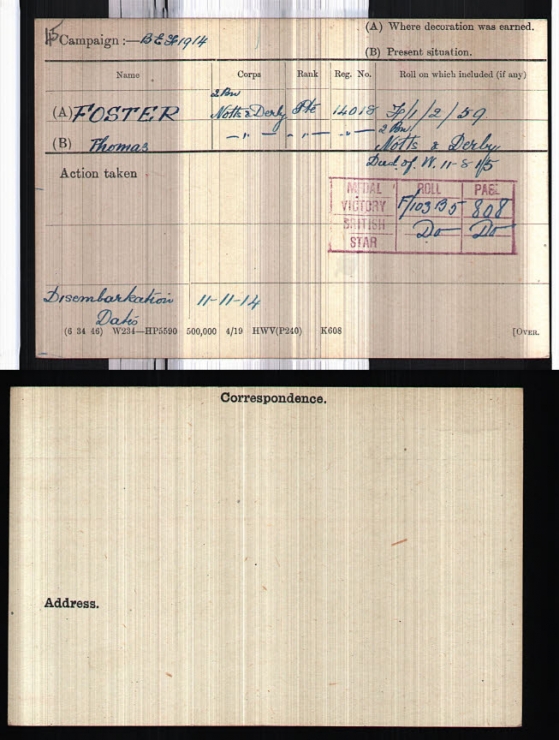 (A) Where decoration was earned.
15 Campaign :— BEF 1914
(B) Present situation.
Name Corps Rank Reg. No. Roll on which included (if any)
2 Bn
(A) FOSTER Notts & Derby Pte 14018 F/1/2/59
2 Bn
(B) Thomas —"— —"— —"— Notts & Derby
Died of W. 11-8-15
Action taken
MEDAL ROLL PAGE
VICTORY F/103 B5 808
BRITISH Do Do
STAR
Disembarkation 11-11-14
Date
(6 34 46) W234—HP5590 500,000 4/19 HWV(P240) K608 [OVER.
Correspondence.
Address.